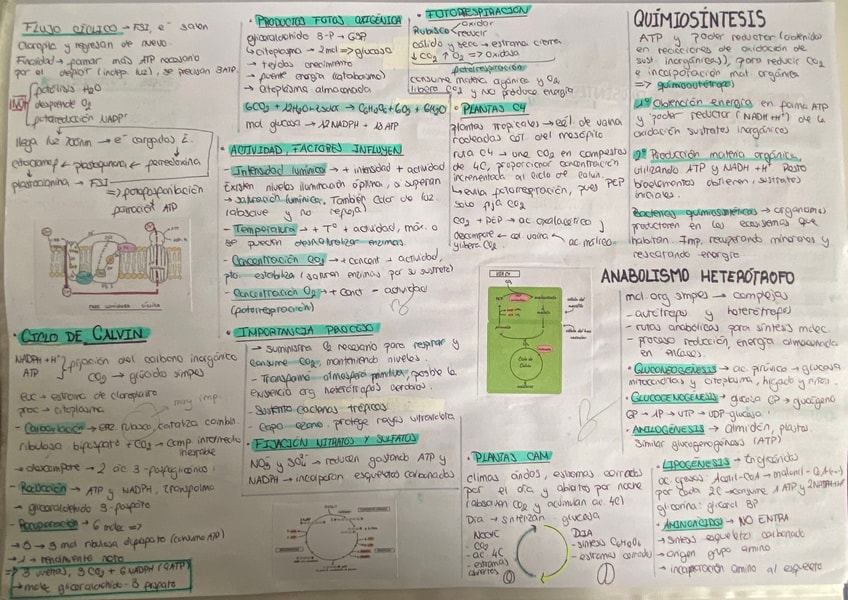 FLUJO CÍCLICO → FSI, e⁻ salen
Clorofila y regresan de nuevo.
Finalidad → formar más ATP necesario
por el (indep. luz), se precisan 3ATP.
fotólisis H₂O
desprende O₂
fotorreducción NADP⁺
llega luz 700nm → e⁻ cargados E.
citocromo ← plastoquinona ← ferredoxina
plastocianina → FSI
⇒ fotofosforilación
formación ATP
FASE LUMINOSA CÍCLICA
CICLO DE CALVIN
NADPH + H⁺
ATP
fijación del carbono inorgánico
CO₂ → glúcidos simples
euc → estroma de cloroplasto
proc → citoplasma
muy imp.
- Carboxilación → rubisco, cataliza combin.
ribulosa bifosfato + CO₂ → comp. intermedio
inestable
→ descompone → 2 ác. 3-fosfoglicérico
- Reducción → ATP y NADPH, transforma
→ gliceraldehído 3-fosfato
- Recuperación → 6 molec ⇒
→ 5 → 3 mol ribulosa difosfato (consume ATP)
→ 1 → rendimiento neto
⇒ 3 vueltas, 3 CO₂ + 6 NADPH (9ATP)
→ molec gliceraldehído-3 fosfato
PRODUCTOS FOTOS. OXIGÉNICA
gliceraldehído 3-P → G3P
↳ citoplasma → 2mol ⇒ glucosa
→ tejidos crecimiento
→ fuente energía (catabolismo)
→ citoplasma almacenada
6CO₂ + 12H₂O + → C₆H₁₂O₆ + 6O₂ + 6H₂O
mol glucosa → 12 NADPH + 18 ATP
ACTIVIDAD, FACTORES INFLUYEN
- Intensidad lumínica → + intensidad + actividad
Existen niveles iluminación óptima, si superan
→ saturación lumínica. También color de luz
(absorbe y no refleja)
- Temperatura → + Tº + actividad, máx. o
se pueden desnaturalizar enzimas.
- Concentración CO₂ → + concent + actividad,
pto. estabiliza (saturan enzimas por su sustrato)
- Concentración O₂ → + conct - actividad
(fotorrespiración)
IMPORTANCIA PROCESO
→ suministra O₂ necesario para respirar y
consume CO₂, manteniendo niveles.
- Transformó atmósfera primitiva, posible la
existencia org heterótrofos aerobios.
- Sustenta cadenas tróficas
- Capa ozono, protege rayos ultravioleta
FIJACIÓN NITRATOS Y SULFATOS
NO₃⁻ y SO₄²⁻ → reducen gastando ATP y
NADPH → incorporan esqueletos carbonados
FOTORRESPIRACIÓN
Rubisco
oxidar
reducir
cálido y seco → estroma cierra
↓ CO₂ ↑ O₂ ⇒ Oxidasa
fotorrespiración
consume materia orgánica y O₂
libera CO₂ y NO produce energía
PLANTAS C4
plantas tropicales → cél. de vaina
rodeadas cél. del mesófilo
ruta C4 → une CO₂ en compuestos
de 4C, proporcionar concentración
incrementada al ciclo de calvin.
↳ evita fotorrespiración, pues PEP
solo fija CO₂
CO₂ + PEP → ac oxalacético
descompone ← cél vaina ← ac málico
y libera CO₂
Ciclo de
Calvin
PLANTAS CAM
climas áridos, estomas cerrados
por el día y abiertos por noche
(absorven CO₂ y acumulan ac. 4C)
Día → sintetizan glucosa
NOCHE
- CO₂
- ac 4C
- estomas
abiertos
DIA
- síntesis C₆H₁₂O₆
- estomas cerrados
QUÍMIOSÍNTESIS
ATP y poder reductor (obtenido
en reacciones de oxidación de
sust. inorgánicas), para reducir CO₂
e incorporación mat orgánica
⇒ quimioautótrofos
1º Obtención energía en forma ATP
y poder reductor (NADH+H⁺) de la
oxidación sustratos inorgánicos
2º Producción materia orgánica,
utilizando ATP y NADH+H⁺. Resto
bioelementos obtienen sustratos
iniciales.
Bacterias quimiosintéticas → organismos
productores en los ecosistemas que
habitan. Imp. recuperando minerales y
rescatando energía
ANABOLISMO HETERÓTROFO
mol. org simples → complejas
- autótrofos y heterótrofos
- rutas anabólicas para síntesis molec
- proceso reducción, energía almacenada
en enlaces.
GLUCONEOGÉNESIS → ac. pirúvico → glucosa
mitocondrias y citoplasma, hígado y riñón.
GLUCOGENOGÉNESIS → glucosa 6P → glucógeno
6P → 1P → UTP → UDP-glucosa
AMILOGÉNESIS → almidón, plastos
Similar glucogenogénesis (ATP)
LIPOGÉNESIS → triglicéridos
ác. grasos: Acetil-CoA → malonil-
por cada 2C → consume 1 ATP y 2NADPH+H⁺
glicerina: glicerol 3P
AMINOÁCIDOS → NO ENTRA
→ síntesis esqueleto carbonado
→ origen grupo amino
→ incorporación amino al esqueleto